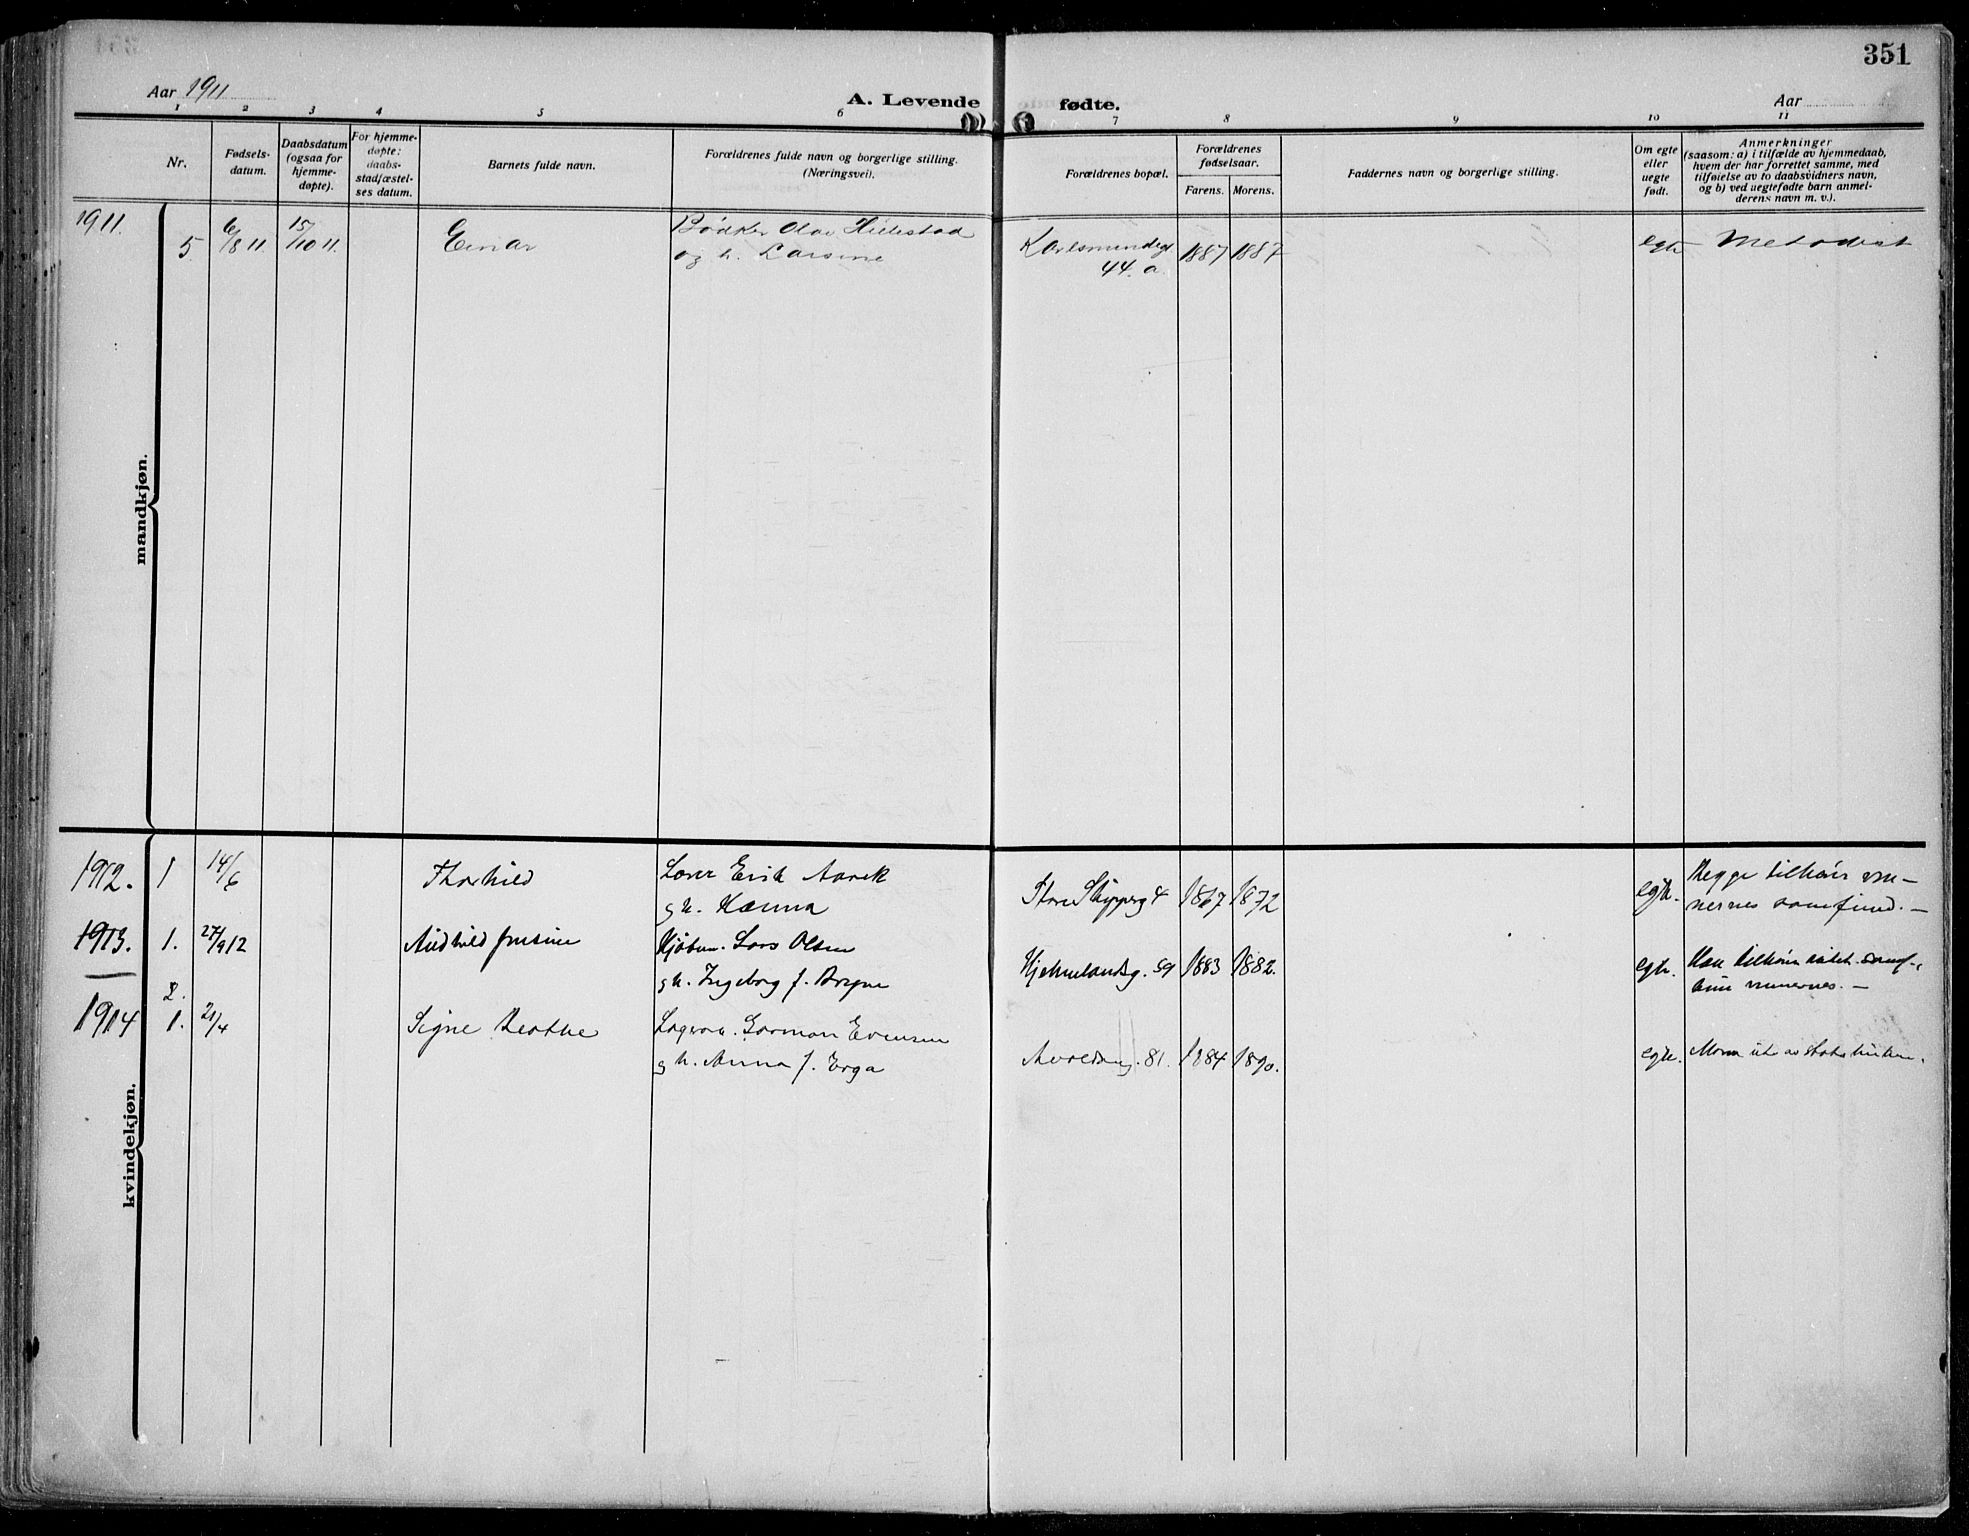 351
Aar 1911
A. Levende fødte.
Aar
1 2 3 4 5 6 7 8 9 10 11
Nr.
Fødsels-
datum.
Daabsdatum
(ogsaa for
hjemme-
døpte).
For hjemme-
døpte:
daabs-
stadfæstel-
ses datum.
Barnets fulde navn.
Forældrenes fulde navn og borgerlige stilling.
(Næringsvei).
Forældrenes bopæl.
Forældrenes
fødselsaar.
Farens. Morens.
Faddernes navn og borgerlige stilling.
Om egte
eller
uegte
født.
Anmerkninger
(saasom: a) i tilfælde av hjemmedaab,
hvem der har forrettet samme, med
tilføielse av to daabsvidners navn,
og b) ved uegtefødte barn anmel-
derens navn m. v.).
mandkjøn.
1911.
5 6/8 11 15/10 11. Einar Bødker Olav Hillestad
og h. Larsine
44. a. 1887 1887 egte Metodist
kvindekjøn.
1912. 1 14/6 Thorhild Erik
g h. Hanna
Store Skipperg 4 1867 1872 egte. Begge tilhører
samfund. —
1913. 1. 27/9 12 Kjøbm. Lars Olsen
g h. Ingeborg f.
Hjelmelandsg. 59 1883 1882. egte.
2.
1914 1. 21/4 Signe Evensen
g h. Anna f. Erga
81. 1884 1890. egte. av statskirken.